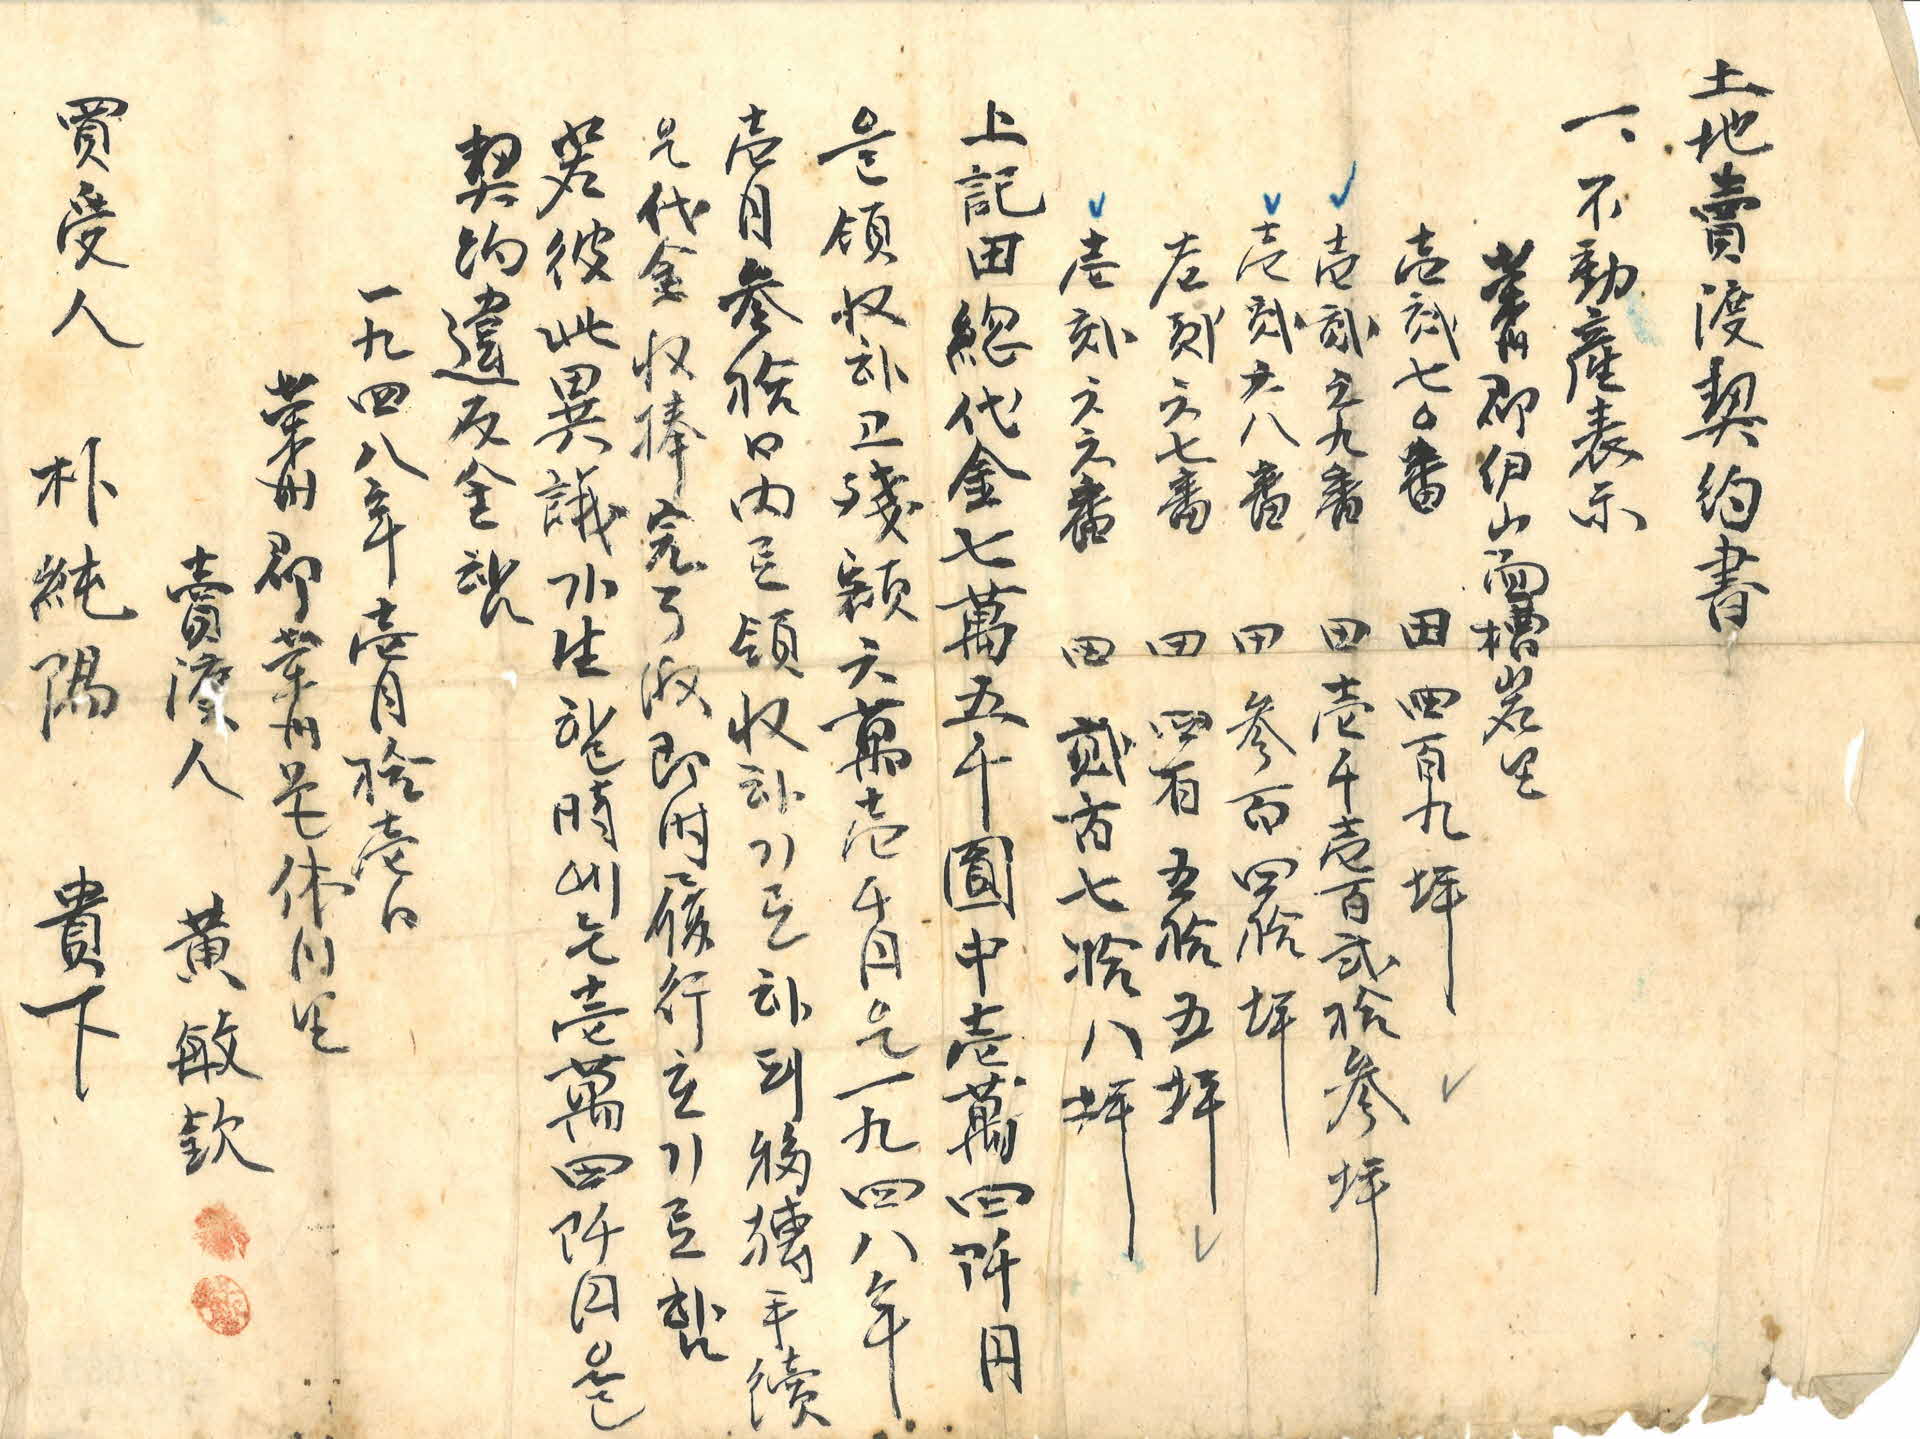 土地賣渡契約書
一、不動産表示
榮州郡伊山面槽岩里
壱貳七〇番 田 四百九坪
壱貳五九番 田 壱千壱百貳拾參坪
壱貳六八番 田 參百四拾坪
壱貳六七番 田 四百五拾五坪
壱貳六六番 田 貳百七拾八坪
上記田總代金七萬五千圓中壱萬四阡円
은領收하고殘額六萬壱千円은一九四八年
壱月參拾日內로領收하기로하되移轉手續
은代金收捧完了後即時履行하기로함
若彼此異議가生할時에는壱萬四阡円을
契約違反金함
一九四八年壱月拾壱日
榮州郡榮州邑 里
賣渡人 黃敏欽
買受人 朴純陽 貴下